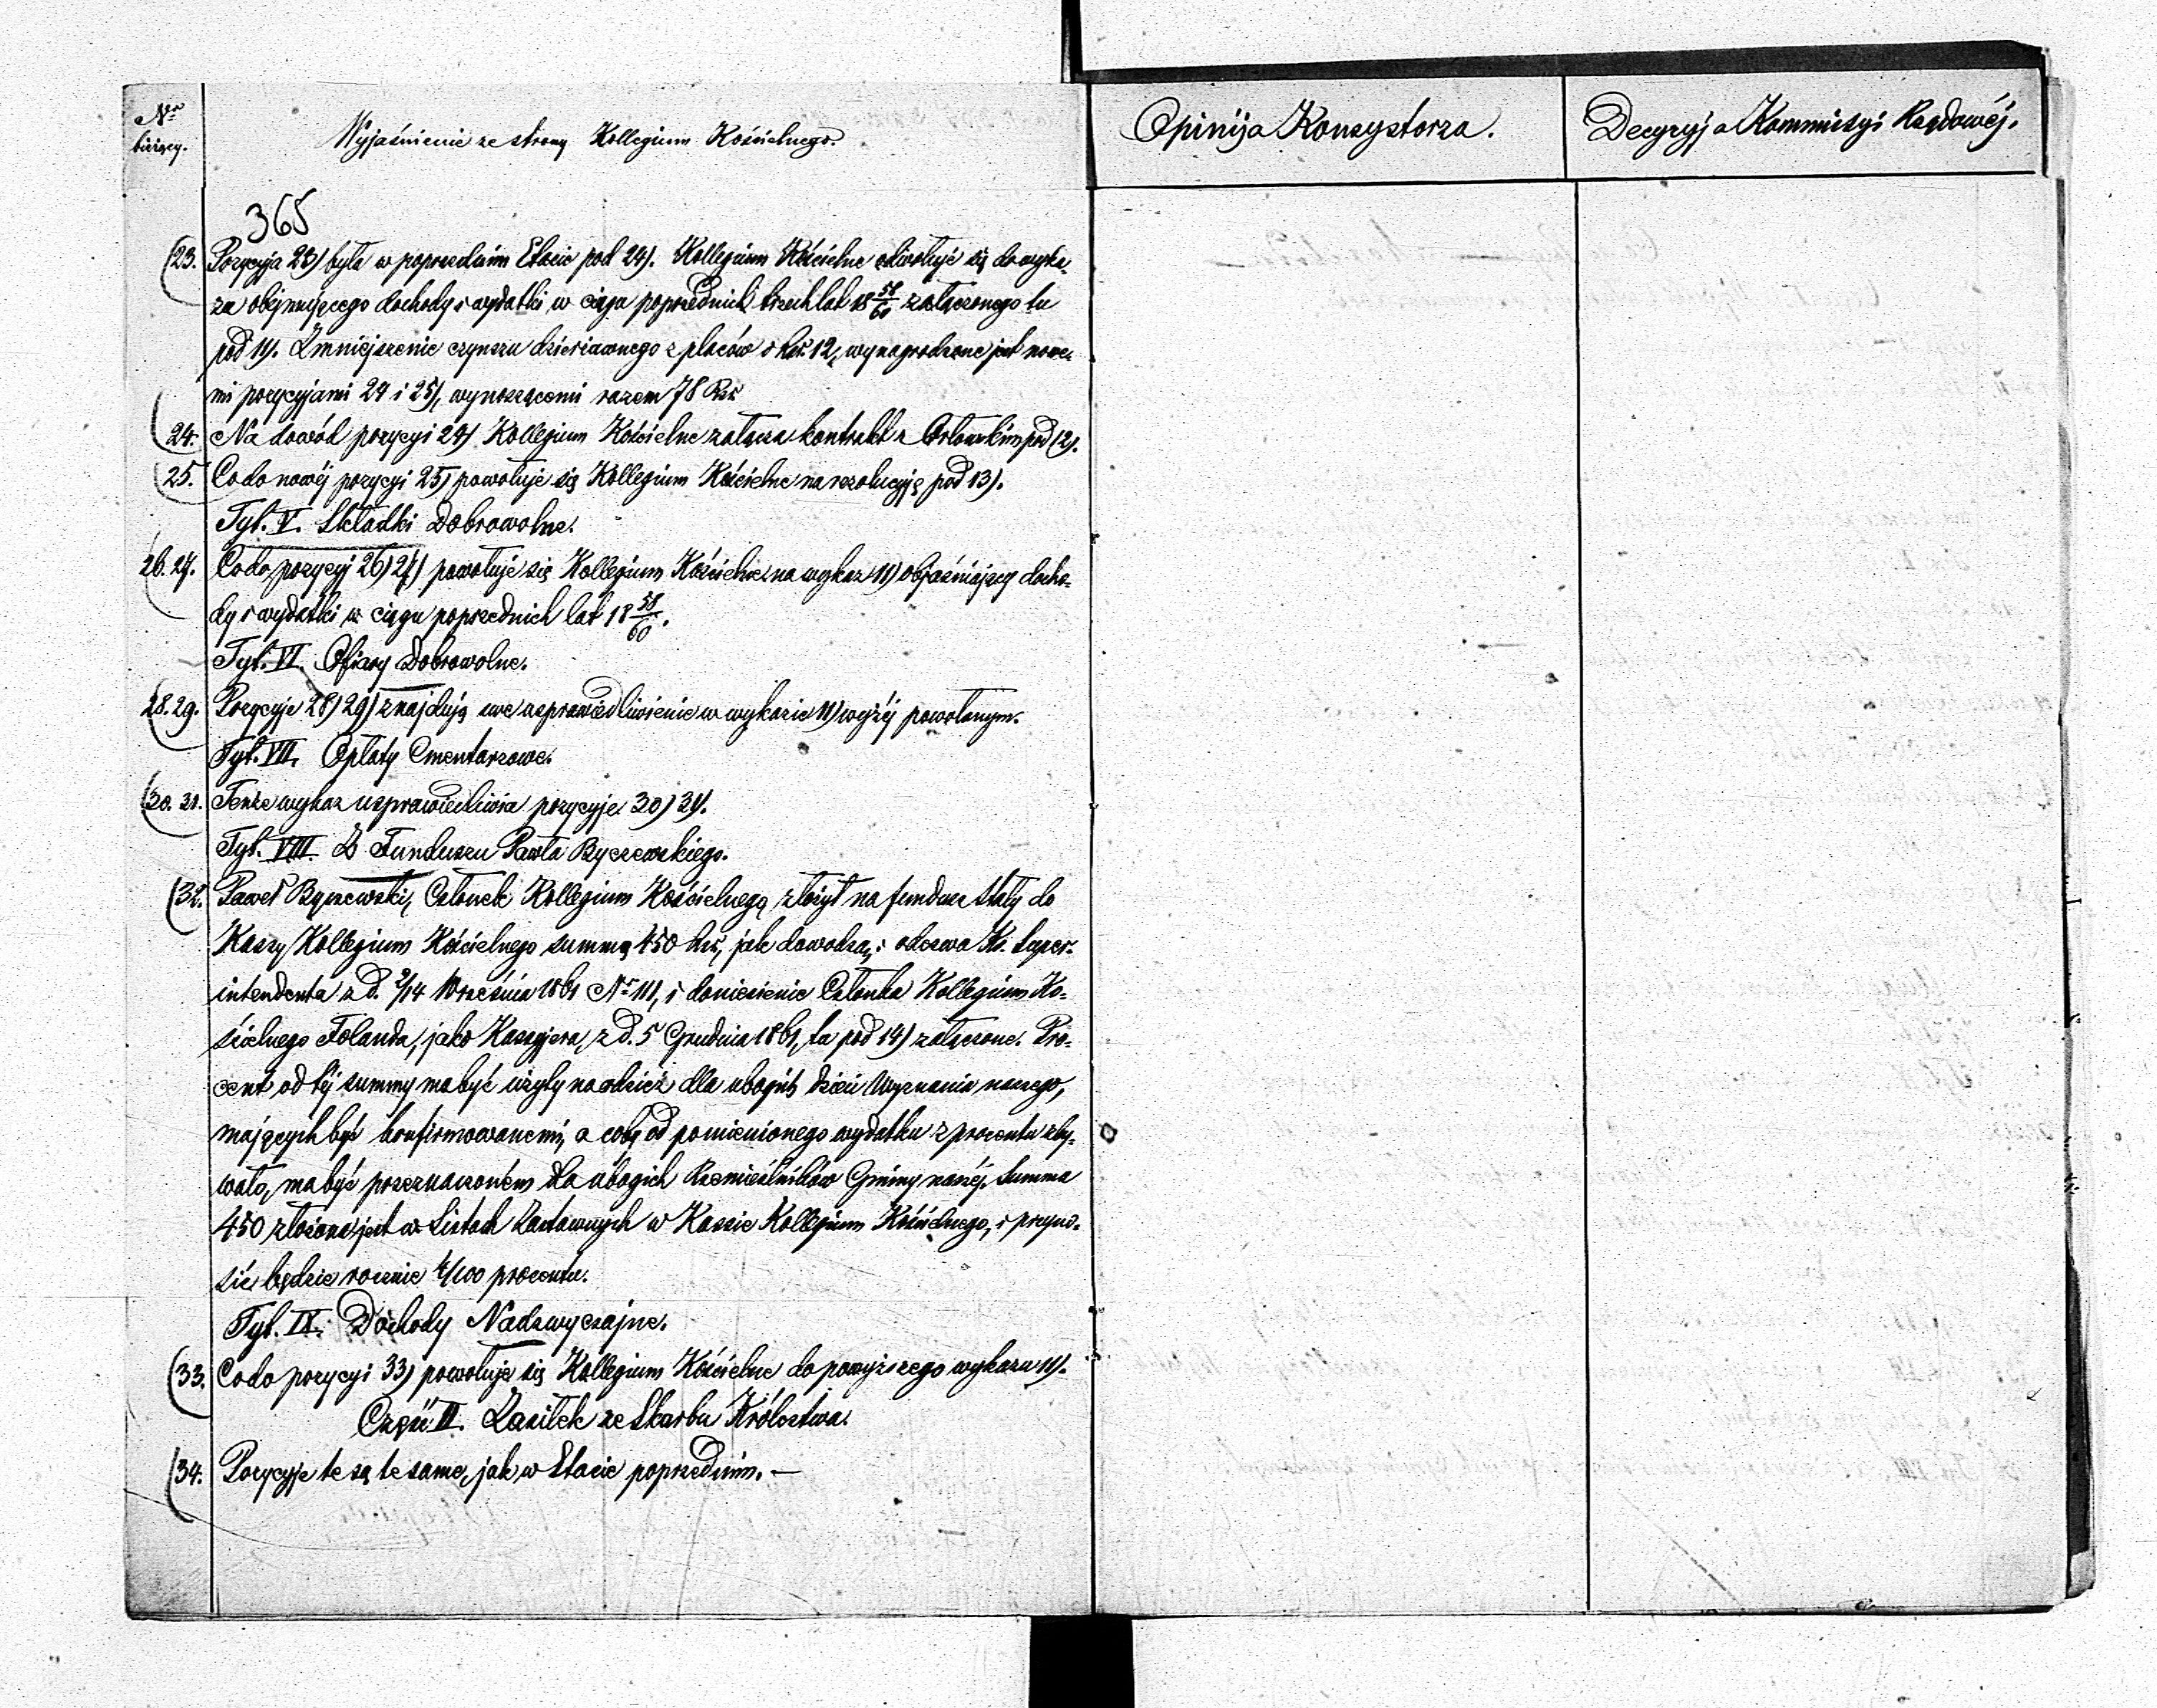 Nr bieżący.
Wyjaśnienie ze strony Kollegium Kościelnego.
Opinija Konsystorza.
Decyzyja Kommissyi Rządowéj.
365
23. Pozycyja 23) była w poprzednim Etacie pod 24). Kollegium Kościelne odwołuje się do wyka-
za obejmującego dochody i wydatki w ciągu poprzednich trzech lat 18 58/60 załączonego tu
pod 11). Zmniejszenie czynszu dzierżawnego z placów o Rsr. 12, wynagrodzone jest nowe-
mi pozycyjami 24 i 25), wynoszącemi razem 78 Rsr.
24. Na dowód pozycyi 24) Kollegium Kościelne załącza kontrakt z Orłowskim pod 12).
25. Co do nowéj pozycyi 25) powołuje się Kollegium Kościelne na rezolucyję pod 13).
Tyt. V. Składki Dobrowolne.
26. 27. Co do pozycyj 26) 27) powołuje się Kollegium Kościelne na wykaz 11) objaśniający docho-
dy i wydatki w ciągu poprzednich lat 18 58/60.
Tyt. VI. Ofiary Dobrowolne.
28. 29. Pozycyje 28) 29) znajdują swe usprawiedliwienie w wykazie 11) wyżéj powołanym.
Tyt. VII. Opłaty Cmentarzowe.
30. 31. Tenże wykaz usprawiedliwia pozycyje 30) 31).
Tyt. VIII. Z Funduszu Pawła Byczewskiego.
32. Paweł Byczewski, Członek Kollegium Kościelnego, złożył na fundusz stały do
Kassy Kollegium Kościelnego summę 450 Rsr, jak dowodzą, i odezwa Ks. Super-
intendenta z d. 2/14 Września 1861 Nr 111, i doniesienie Członka Kollegium Ko-
ścielnego Folanda, jako Kassyjera, z d. 5 Grudnia 1861, tu pod 14) załączone. Pro-
cent od téj summy ma być użyty na odzież dla ubogich dzieci Wyznania naszego,
mających być konfirmowanemi, a coby od pomienionego wydatku z procentu zby-
wało, ma być przeznaczoném dla ubogich Rzemieślników Gminy naszéj. Summa
450 złożona jest w Listach Zastawnych w Kassie Kollegium Kościelnego, i przyno-
sić będzie rocznie 4/100 procentu.
Tyt. IX. Dochody Nadzwyczajne.
33. Co do pozycyi 33) powołuje się Kollegium Kościelne do powyższego wykazu 11).
Część II. Zasiłek ze Skarbu Królestwa.
34. Pozycyje te są te same, jak w Etacie poprzednim. —